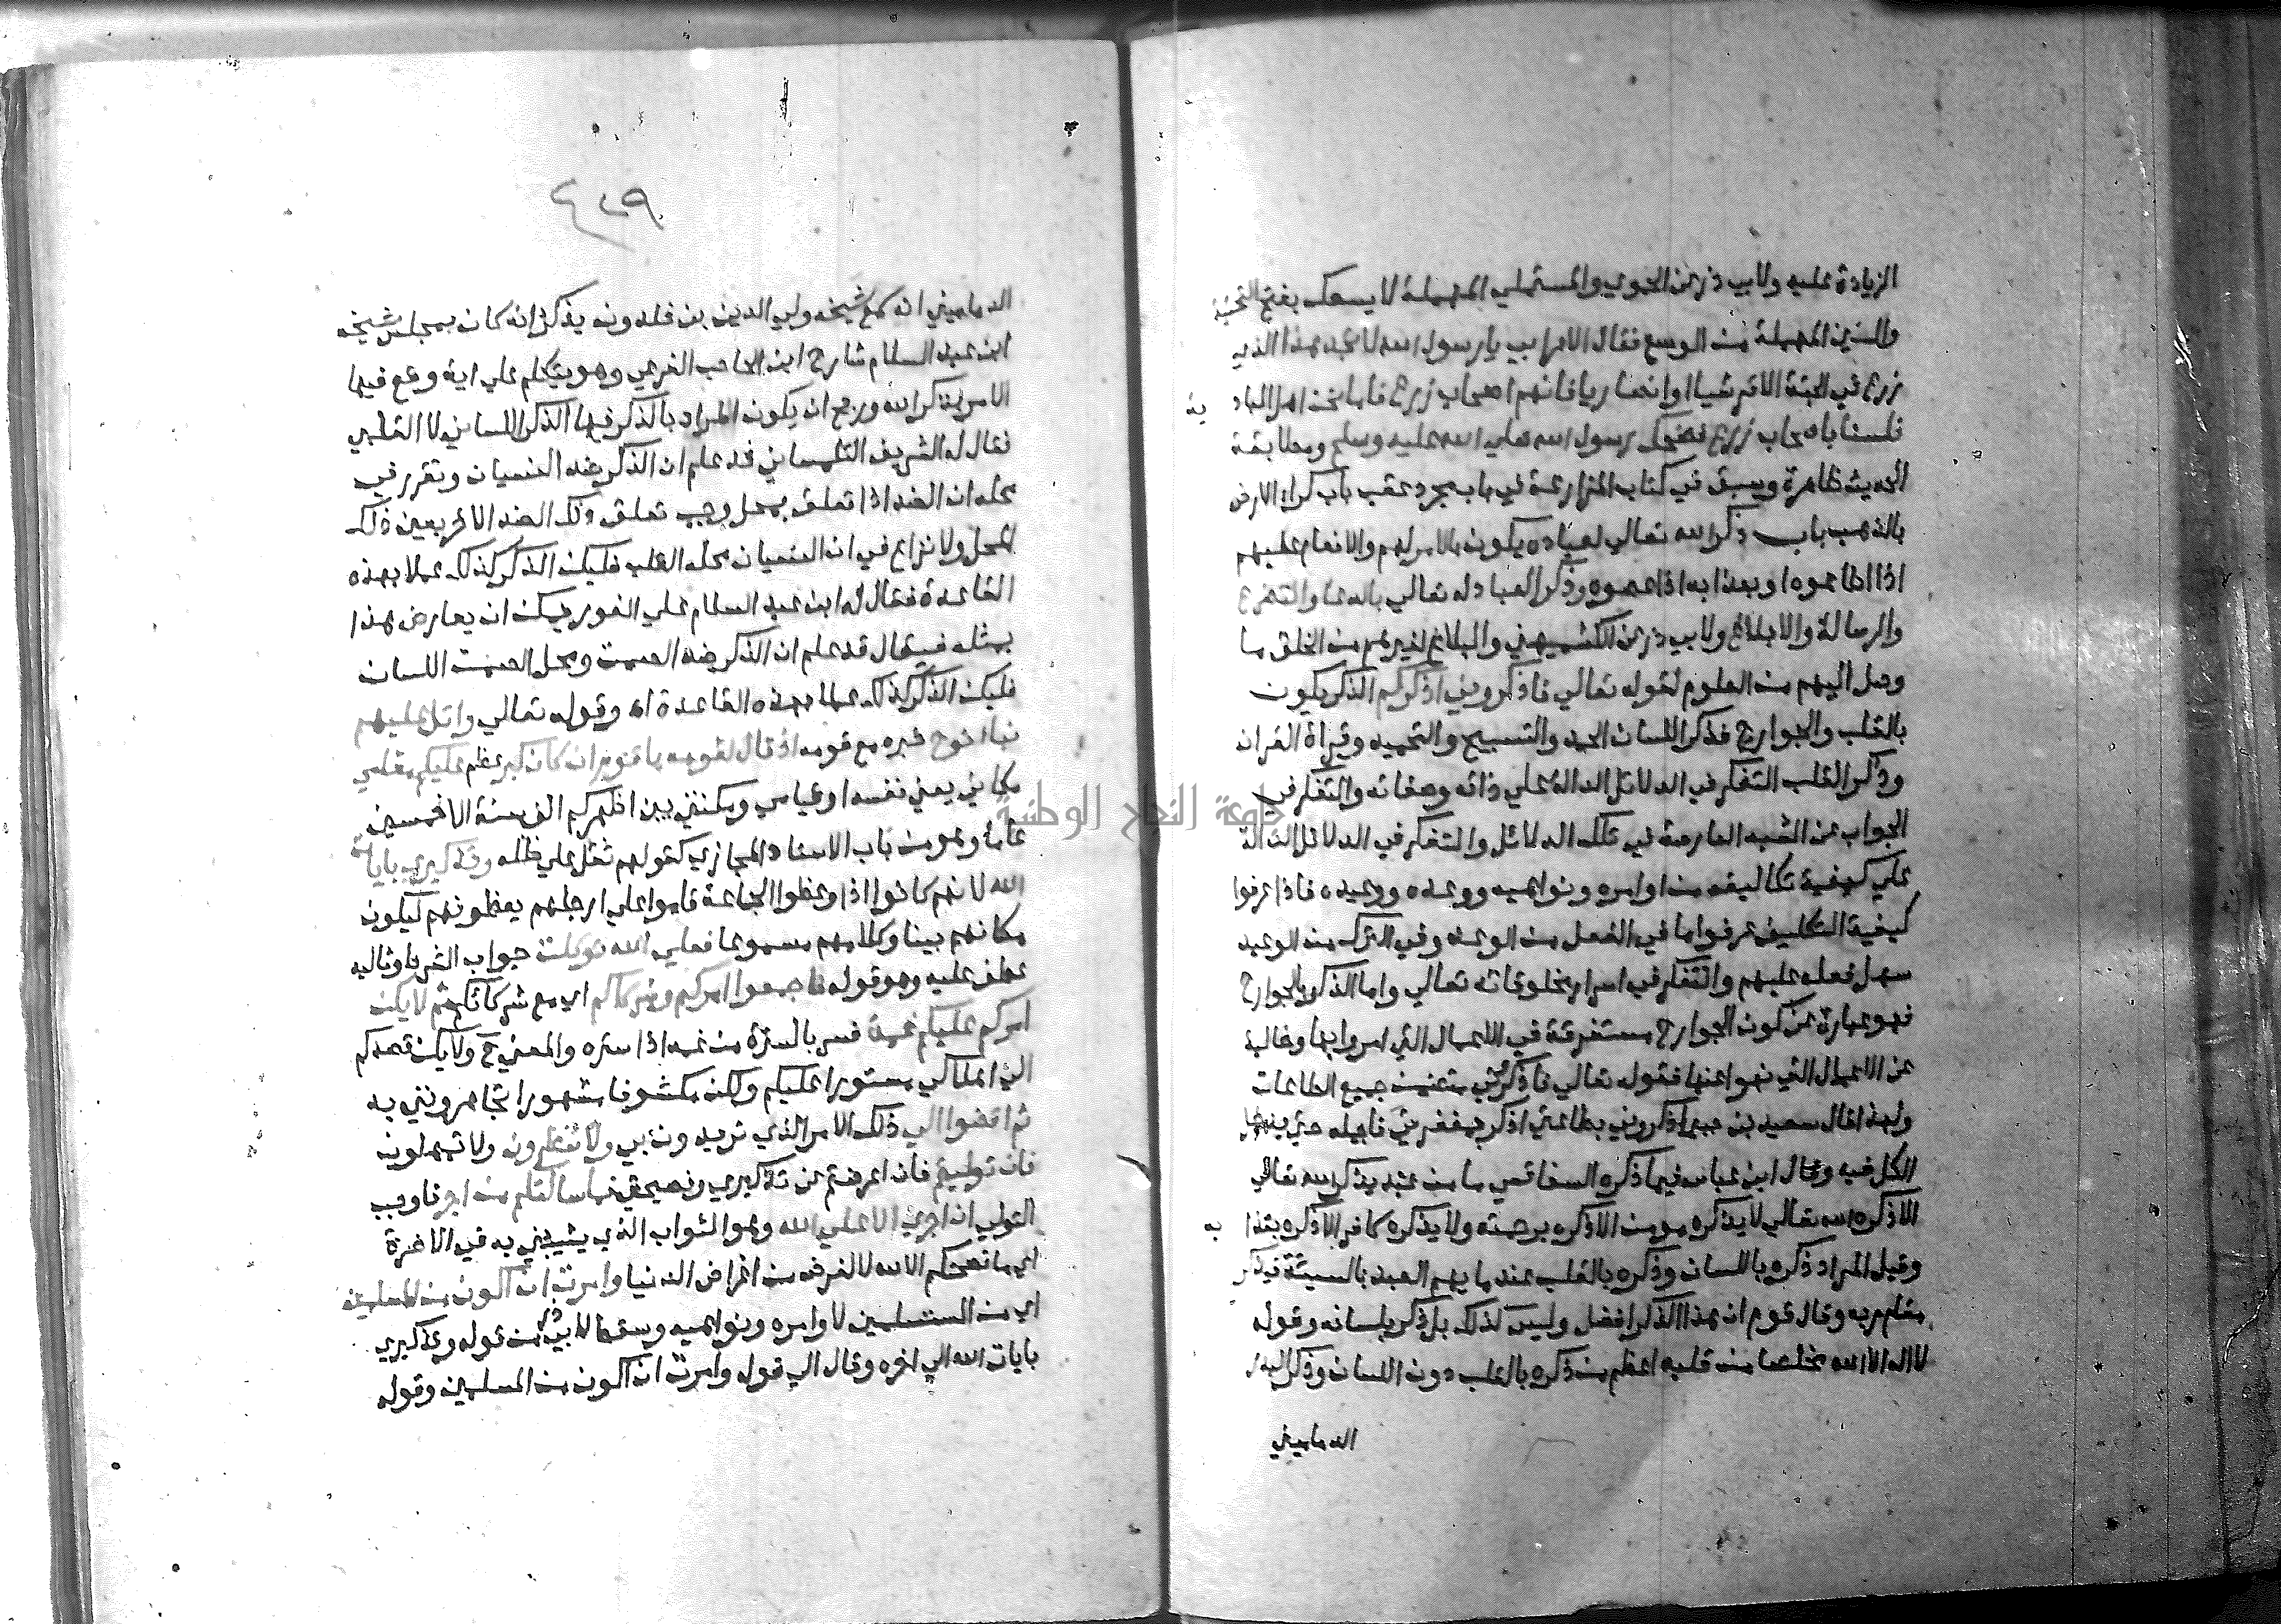 الزيادة عليه ولابي ذر عن الحموي والمستملي المهملة لا يسعك بفتح التحتية
والسين المهملة من الوسع فقال الاعرابي يا رسول الله لا تجد هذا الذي
زرع في الجنة الا قرشيا او انصاريا فانهم اصحاب زرع فاما نحن اهل الباد
ية
فلسنا باصحاب زرع فضحك رسول الله صلي الله عليه وسلم ومطابقة
الحديث ظاهرة وسبق في كتاب المزارعة في باب مجرد عقب باب كراء الارض
بالذهب باب ذكر الله تعالي لعباده يكون بالامر لهم والانعام عليهم
اذا اطاعوه او بعذابه اذا عصوه وذكر العباد له تعالي بالدعا والتضرع
والرسالة والابلاغ ولابي ذر عن الكشميهني والبلاغ لغيرهم من الخلق ما
وصل اليهم من العلوم لقوله تعالي فاذكروني اذكركم الذكر يكون
بالقلب والجوارح فذكر اللسان الحمد والتسبيح والتحميد وقراة القران
وذكر القلب التفكر في الدلائل الدالة علي ذاته وصفاته والتفكر في
الجواب عن الشبه العارضة في تلك الدلائل والتفكر في الدلائل الدالة
علي كيفية تكاليفه من اوامره ونواهيه ووعده ووعيده فاذا عرفوا
كيفية التكليف عرفوا ما في الفعل من الوعد وفي الترك من الوعيد
سهل فعله عليهم والتفكر في اسرار مخلوقاته تعالي واما الذكر بالجوارح
فهو عبارة عن كون الجوارح مستغرقة في الاعمال التي امروا بها وخالية
عن الاعمال التي نهوا عنها فقوله تعالي فاذكروني متضمن جميع الطاعات
ولهذا قال سعيد بن جبير اذكروني بطاعتي اذكركم بمغفرتي فاجمله حتي يدخل
الكل فيه وقال ابن عباس فيما ذكره السفاقسي ما من عبد يذكر الله تعالي
الا ذكره الله تعالي لا يذكره مومن الا ذكره برحمته ولا يذكره كافر الا ذكره بعذا
به
وقيل المراد ذكره باللسان وذكره بالقلب عندما يهم العبد بالسيئة فيذكر
مقام ربه وقال قوم ان هذا الذكر افضل وليس كذلك بل ذكره بلسانه وقوله
لا اله الا الله مخلصا من قلبه اعظم من ذكره بالقلب دون اللسان وذكر البدر
الدماميني
٤٢٩
الدماميني انه سمع شيخه ولي الدين بن خلدون يذكر انه كان بمجلس شيخه
ابن عبد السلام شارح ابن الحاجب الفرعي وهو يتكلم علي اية وقع فيها
الامر بذكر الله ورجح ان يكون المراد بالذكر فيها الذكر اللساني لا القلبي
فقال له الشريف التلمساني قد علم ان الذكر ضد النسيان وتقرر في
محله ان الضد اذا تعلق بمحل وجب تعلق ذلك الضد الاخر بعين ذلك
المحل ولا نزاع في ان النسيان محله القلب فليكن الذكر كذلك عملا بهذه
القاعدة فقال له ابن عبد السلام علي الفور يمكن ان يعارض هذا
بمثله فيقال قد علم ان الذكر ضد الصمت ومحل الصمت اللسان
فليكن الذكر كذلك عملا بهذه القاعدة اه وقوله تعالي واتل عليهم
نبا نوح خبره مع قومه اذ قال لقومه يا قوم ان كان كبر عظم عليكم مقامي
مكاني يعني نفسه او قيامي ومكثني بين اظهركم الف سنة الا خمسين
عاما وهو من باب الاسناد المجازي كقولهم ثقل علي ظله وتذكيري بايات
الله لانهم كانوا اذا وعظوا الجماعة قاموا علي ارجلهم يعظونهم ليكون
مكانهم بينا وكلامهم مسموعا فعلي الله توكلت جواب الشرط وتاليه
عطف عليه وهو قوله فاجمعوا امركم وشركاكم اي مع شركائكم ثم لا يكن
امركم عليكم غمة فسر بالسترة من غمه اذا ستره والمعني ح ولا يكن قصدكم
الي اهلاكي مستورا عليكم ولكن مكشوفا مشهورا تجاهرونني به
ثم اقضوا الي ذلك الامر الذي تريدون بي ولا تنظرون ولا تمهلون
فان توليتم فان اعرضتم عن تذكيري ونصيحتي فما سالتكم من اجر فاوجب
التولي ان اجري الا علي الله وهو الثواب الذي يثيبني به في الاخرة
اي ما نصحتكم الا لله لا لغرض من اغراض الدنيا وامرت ان اكون من المسلمين
اي من المستسلمين لاوامره ونواهيه وسقط لابي ذر من قوله وتذكيري
بايات الله الي اخره وقال الي قوله وامرت ان اكون من المسلمين وقوله
جامعة النجاح الوطنية